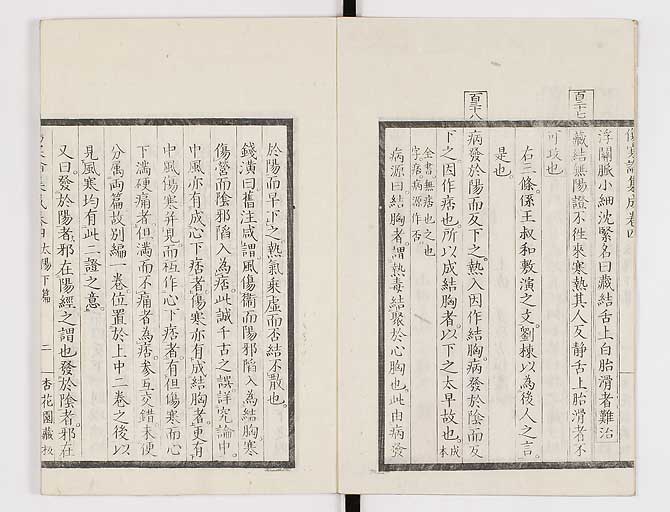 傷寒論集成卷四
百廿七
浮關脈小細沈緊名曰藏結舌上白胎滑者難治
藏結無陽證不往來寒熱其人反靜舌上胎滑者不
可攻也
右三條係王叔和敷演之文劉棟以為後人之言
是也
百廿八
病發於陽而反下之熱入因作結胸病發於陰而反
下之因作痞也所以成結胸者以下之太早故也成本
全書無痞也之也
字病源痞作否
病源曰結胸者謂熱毒結聚於心胸也此由病發
於陽而早下之熱氣乘虛而否結不散也
錢潢曰舊注咸謂風傷衛而陽邪陷入為結胸寒
傷營而陰邪陷入為痞此誠千古之誤詳究論中
中風亦有成心下痞者傷寒亦有成結胸者更有
中風傷寒并見而作心下痞者有但傷寒而心
下滿硬痛者但滿而不痛者為痞參互交錯未便
分屬兩篇故別編一卷位置於上中二卷之後以
見風寒均有此二證之意
又曰發於陽者邪在陽經之謂也發於陰者邪在
卷四 太陽下篇 二 杏花園藏板